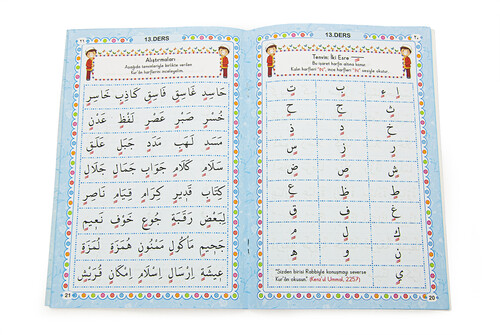 13.DERS
٢٠
Tenvin: İki Esre
Bu işaret harfin altına konur.
Kalın harfleri "ın", ince harfleri "in" sesiyle okutur.
اٍ ءٍ بٍ تٍ
ثٍ جٍ حٍ
خٍ دٍ ذٍ
رٍ زٍ سٍ
شٍ صٍ ضٍ
طٍ ظٍ عٍ
غٍ فٍ قٍ
كٍ لٍ مٍ
نٍ وٍ هٍ
يٍ
"Sizden birisi Rabbiyle konuşmayı severse
Kur'ân okusun." (Kenz'ül Ummal, 2257)
20
٢١
13.DERS
Alıştırmalar:
Aşağıda tanımlarıyla birlikte verilen
Kur'ân harflerini inceleyelim.
حَاسِدٍ غَاسِقٍ فَاسِقٍ كَاذِبٍ خَاسِرٍ
خُسْرٍ صَبْرٍ عَصْرٍ لَفْظٍ عَدْنٍ
مَسَدٍ لَهَبٍ مَدَدٍ جَبَلٍ عَلَقٍ
سَلَامٍ كَلَامٍ جَوَابٍ جَمَالٍ جَلَالٍ
كِتَابٍ قَدِيرٍ كِرَامٍ قِيَامٍ نَاصِرٍ
لِبَعْضٍ رَقَبَةٍ جُوعٍ خَوْفٍ نَعِيمٍ
جَحِيمٍ مَأْكُولٍ مَمْنُونٍ هُمَزَةٍ لُمَزَةٍ
عِيشَةٍ اِرْسَالٍ اِسْلَامٍ اِمْكَانٍ قُرَيْشٍ
21